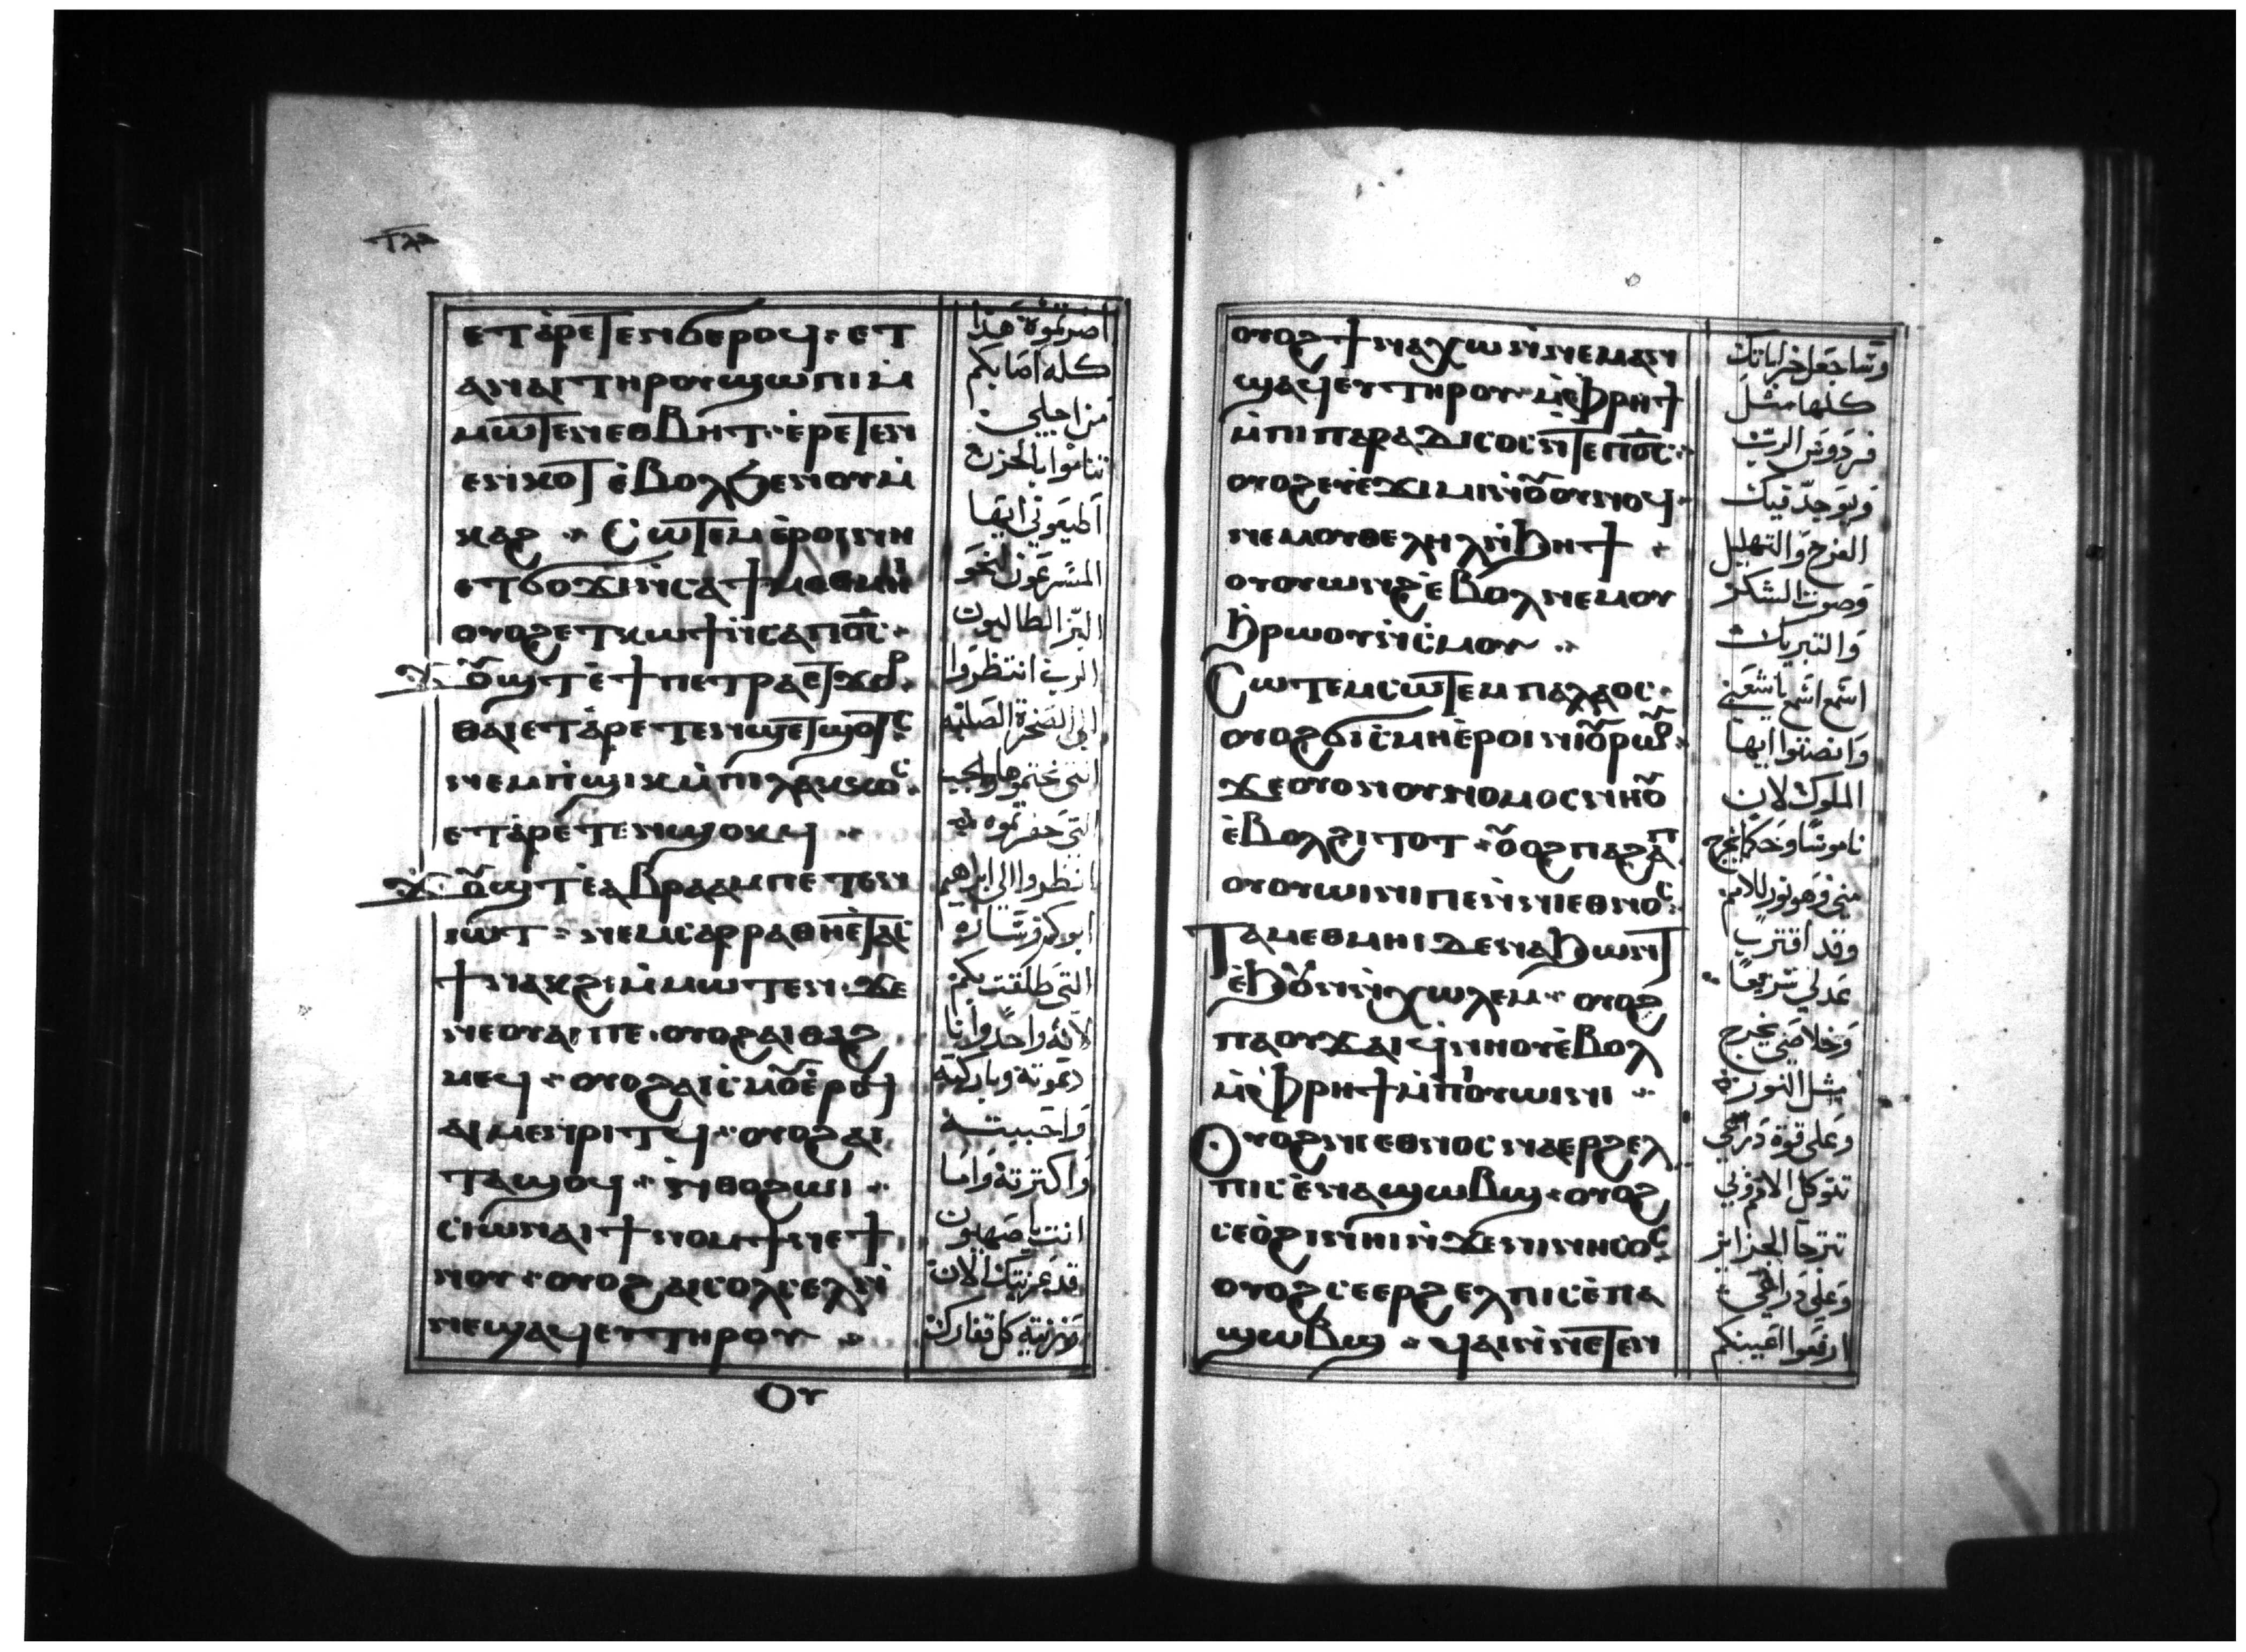 ⲉⲧⲁⲣⲉⲧⲉⲛϭⲉⲣⲟϥ· ⲉⲧ
ⲁⲛⲁⲓ ⲧⲏⲣⲟⲩ ϣⲱⲡⲓ ⲙ̀
ⲙⲱⲧⲉⲛ ⲉⲑⲃⲏⲧ· ⲉ̀ⲣⲉⲧⲉⲛ
ⲉⲛⲕⲟⲧ ⲉ̀ⲃⲟⲗ ϧⲉⲛ ⲟⲩⲙ̀
ⲕⲁϩ ⁘ Ⲥⲱⲧⲉⲙ ⲉ̀ⲣⲟⲓ ⲛⲏ
ⲉⲧϭⲟϫⲓ ⲛ̀ⲥⲁ ϯⲙⲉⲑⲙⲏⲓ
ⲟⲩⲟϩ ⲉⲧⲕⲱϯ ⲛ̀ⲥⲁ ⲡⲟ̅ⲥ̅·
ϫⲟⲩϣⲧ ⲉ̀ϯⲡⲉⲧⲣⲁ ⲉⲧϫⲟⲣ·
ⲑⲁⲓ ⲉⲧⲁ̀ⲣⲉⲧⲉⲛϣⲉⲧϣⲱⲧⲥ
ⲛⲉⲙ ⲡ̀ϣⲓⲕ ⲙ̀ⲡⲓⲗⲁⲕⲕⲟⲥ
ⲉⲧⲁ̀ⲣⲉⲧⲉⲛϣⲟⲕϥ ⁘
ϫⲟⲩϣⲧ ⲉ̀ⲁⲃⲣⲁⲁⲙ ⲡⲉⲧⲉⲛ
ⲓⲱⲧ· ⲛⲉⲙ ⲥⲁⲣⲣⲁ ⲑⲏⲉⲧⲁⲥ
ϯⲛⲁⲕϩⲓ ⲙ̀ⲙⲱⲧⲉⲛ· ϫⲉ
ⲛⲉ ⲟⲩⲁⲓ ⲡⲉ· ⲟⲩⲟϩ ⲁⲓⲑⲁϩ
ⲙⲉϥ· ⲟⲩⲟϩ ⲁⲓⲥ̀ⲙⲟⲩ ⲉ̀ⲣⲟϥ
ⲁⲓⲙⲉⲛⲣⲓⲧϥ· ⲟⲩⲟϩ ⲁⲓ
ⲧⲁϣⲟϥ· ⲛ̀ⲑⲟ ϩⲱⲓ ·
ⲥⲓⲱⲛ ⲁⲓϯⲛⲟⲙϯ ⲛⲉ ϯ
ⲛⲟⲩ· ⲟⲩⲟϩ ⲁⲓⲥⲟⲗⲥⲉⲗ ⲛ̀
ⲛⲉϣⲁϥⲉⲩ ⲧⲏⲣⲟⲩ ⁘
ⲟⲩ
اضرتموه هذا
كله اصابكم
من اجلي
تناموا بالحزن
اطيعوني ايها
المسرعون نحو
البر الطالبون
الرب انتظروا
الى الصخرة الصلبه
التي حفرتموه
انظروا الى ابراهيم
ابوكم وساره
التي طلقت بكم
لانه واحد وانا
دعوته وباركته
واحببته
واكثرته واما
انت صهيون
قد عزيتك الان
وعزيت كل قفارك
ⲟⲩⲟϩ ϯⲛⲁⲭⲱ ⲛ̀ⲛⲉⲙⲁⲛ
ϣⲁϥⲉⲩ ⲧⲏⲣⲟⲩ ⲙ̀ⲫⲣⲏϯ
ⲙ̀ⲡⲓⲡⲁⲣⲁⲇⲓⲥⲟⲥ ⲛ̀ⲧⲉ ⲡⲟ̅ⲥ̅·
ⲟⲩⲟϩ ⲉⲩⲉ̀ϫⲓⲙⲓ ⲛ̀ⲟⲩⲟⲩⲛⲟϥ·
ⲛⲉⲙ ⲟⲩⲑⲉⲗⲏⲗ ⲛ̀ϧⲏϯ·
ⲟⲩⲟⲩⲱⲛϩ ⲉ̀ⲃⲟⲗ ⲛⲉⲙ ⲟⲩ
ϧⲣⲱⲟⲩ ⲛ̀ⲥ̀ⲙⲟⲩ ⁘
Ⲥⲱⲧⲉⲙ ⲥⲱⲧⲉⲙ ⲡⲁⲗⲁⲟⲥ·
ⲟⲩⲟϩ ϭⲓⲥ̀ⲙⲏ ⲉ̀ⲣⲟⲓ ⲛⲓⲟⲩⲣⲱⲟⲩ·
ϫⲉ ⲟⲩⲟⲛ ⲟⲩⲛⲟⲙⲟⲥ ⲛⲏⲟⲩ
ⲉ̀ⲃⲟⲗ ϩⲓⲧⲟⲧ· ⲟⲩⲟϩ ⲡⲁϩⲁⲡ
ⲟⲩⲟⲩⲱⲓⲛⲓ ⲡⲉ ⲛ̀ⲛⲓⲉⲑⲛⲟⲥ
Ⲧⲁⲙⲉⲑⲙⲏⲓ ⲇⲉ ⲛⲁϧⲱⲛⲧ
ⲉ̀ϧⲟⲩⲛ ⲛ̀ⲭⲱⲗⲉⲙ· ⲟⲩⲟϩ
ⲡⲁⲟⲩϫⲁⲓ ϥ̀ⲛⲏⲟⲩ ⲉ̀ⲃⲟⲗ
ⲙ̀ⲫⲣⲏϯ ⲙ̀ⲡⲓⲟⲩⲱⲓⲛⲓ ⁘
Ⲟⲩⲟϩ ⲛⲓⲉⲑⲛⲟⲥ ⲛⲁⲉⲣϩⲉⲗ
ⲡⲓⲥ ⲉ̀ⲛⲁϣⲱⲃϣ· ⲟⲩⲟϩ
ⲥⲉⲟ̀ϩⲓ ⲛⲏⲓ ⲛ̀ϫⲉ ⲛⲓⲛⲏⲥⲟⲥ
ⲟⲩⲟϩ ⲥⲉⲉⲣϩⲉⲗⲡⲓⲥ ⲉ̀ⲡⲁ
ϣⲱⲃϣ · ϥⲁⲓ ⲛ̀ⲛⲉⲧⲉⲛ
وساجعل خراباتك
كلها مثل
فردوس الرب
ويوجد فيك
الفرح والتهليل
وصوت الشكر
والتبريك
اسمع اسمع يا شعبي
وانصتوا ايها
الملوك لان
ناموسا وحكما يخرج
مني وهو نور للامم
وقد اقترب
عدلي سريعا
وخلاصي يخرج
مثل النور
وعلى قوة ذراعي
تتوكل الامم
الجزاير
وعلى ذراعي
ارفعوا اعينكم